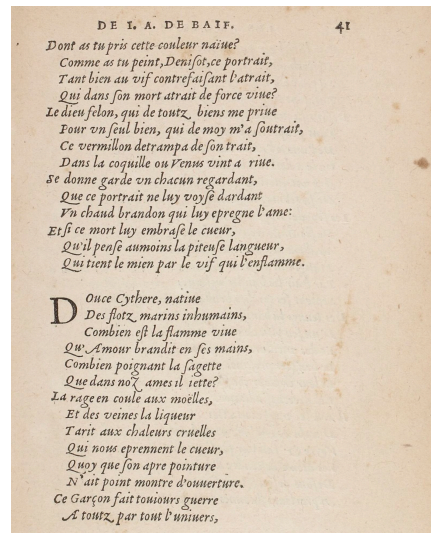 DE I. A. DE BAIF. 41
Dont as tu pris cette couleur naïue?
Comme as tu peint, Denisot, ce portrait,
Tant bien au vif contrefaisant l'atrait,
Qui dans son mort atrait de force viue?
Le dieu felon, qui de toutz biens me priue
Pour vn seul bien, qui de moy m'a soutrait,
Ce vermillon detrampa de son trait,
Dans la coquille ou Venus vint a riue.
Se donne garde vn chacun regardant,
Que ce portrait ne luy voyse dardant
Vn chaud brandon qui luy epregne l'ame:
Et si ce mort luy embrase le cueur,
Qu'il pense aumoins la piteuse langueur,
Qui tient le mien par le vif qui l'enflamme.
Douce Cythere, natiue
Des flotz marins inhumains,
Combien est la flamme viue
Qu'Amour brandit en ses mains,
Combien poignant la sagette
Que dans noz ames il iette?
La rage en coule aux moëlles,
Et des veines la liqueur
Tarit aux chaleurs cruelles
Qui nous eprennent le cueur,
Quoy que son apre pointure
N'ait point montre d'ouuerture.
Ce Garçon fait touiours guerre
A toutz par tout l'uniuers,